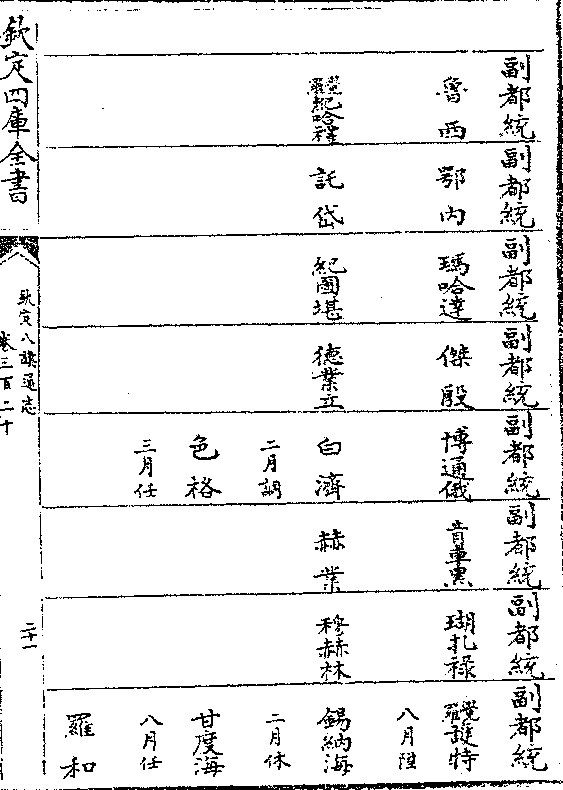 副都統 副都統 副都統 副都統 副都統 副都統 副都統 副都統
魯西 鄂内 瑪哈達 傑殷 博通俄 音車黑 瑚扎祿 覺羅護特
八月陞
覺羅紀哈禮 託岱 紀圖堪 德業立 白濟 赫業 穆赫林 錫納海
二月調 二月休
色格 甘度海
三月任 八月任
羅和
欽定四庫全書
欽定八旗通志
卷三百二十
二十一